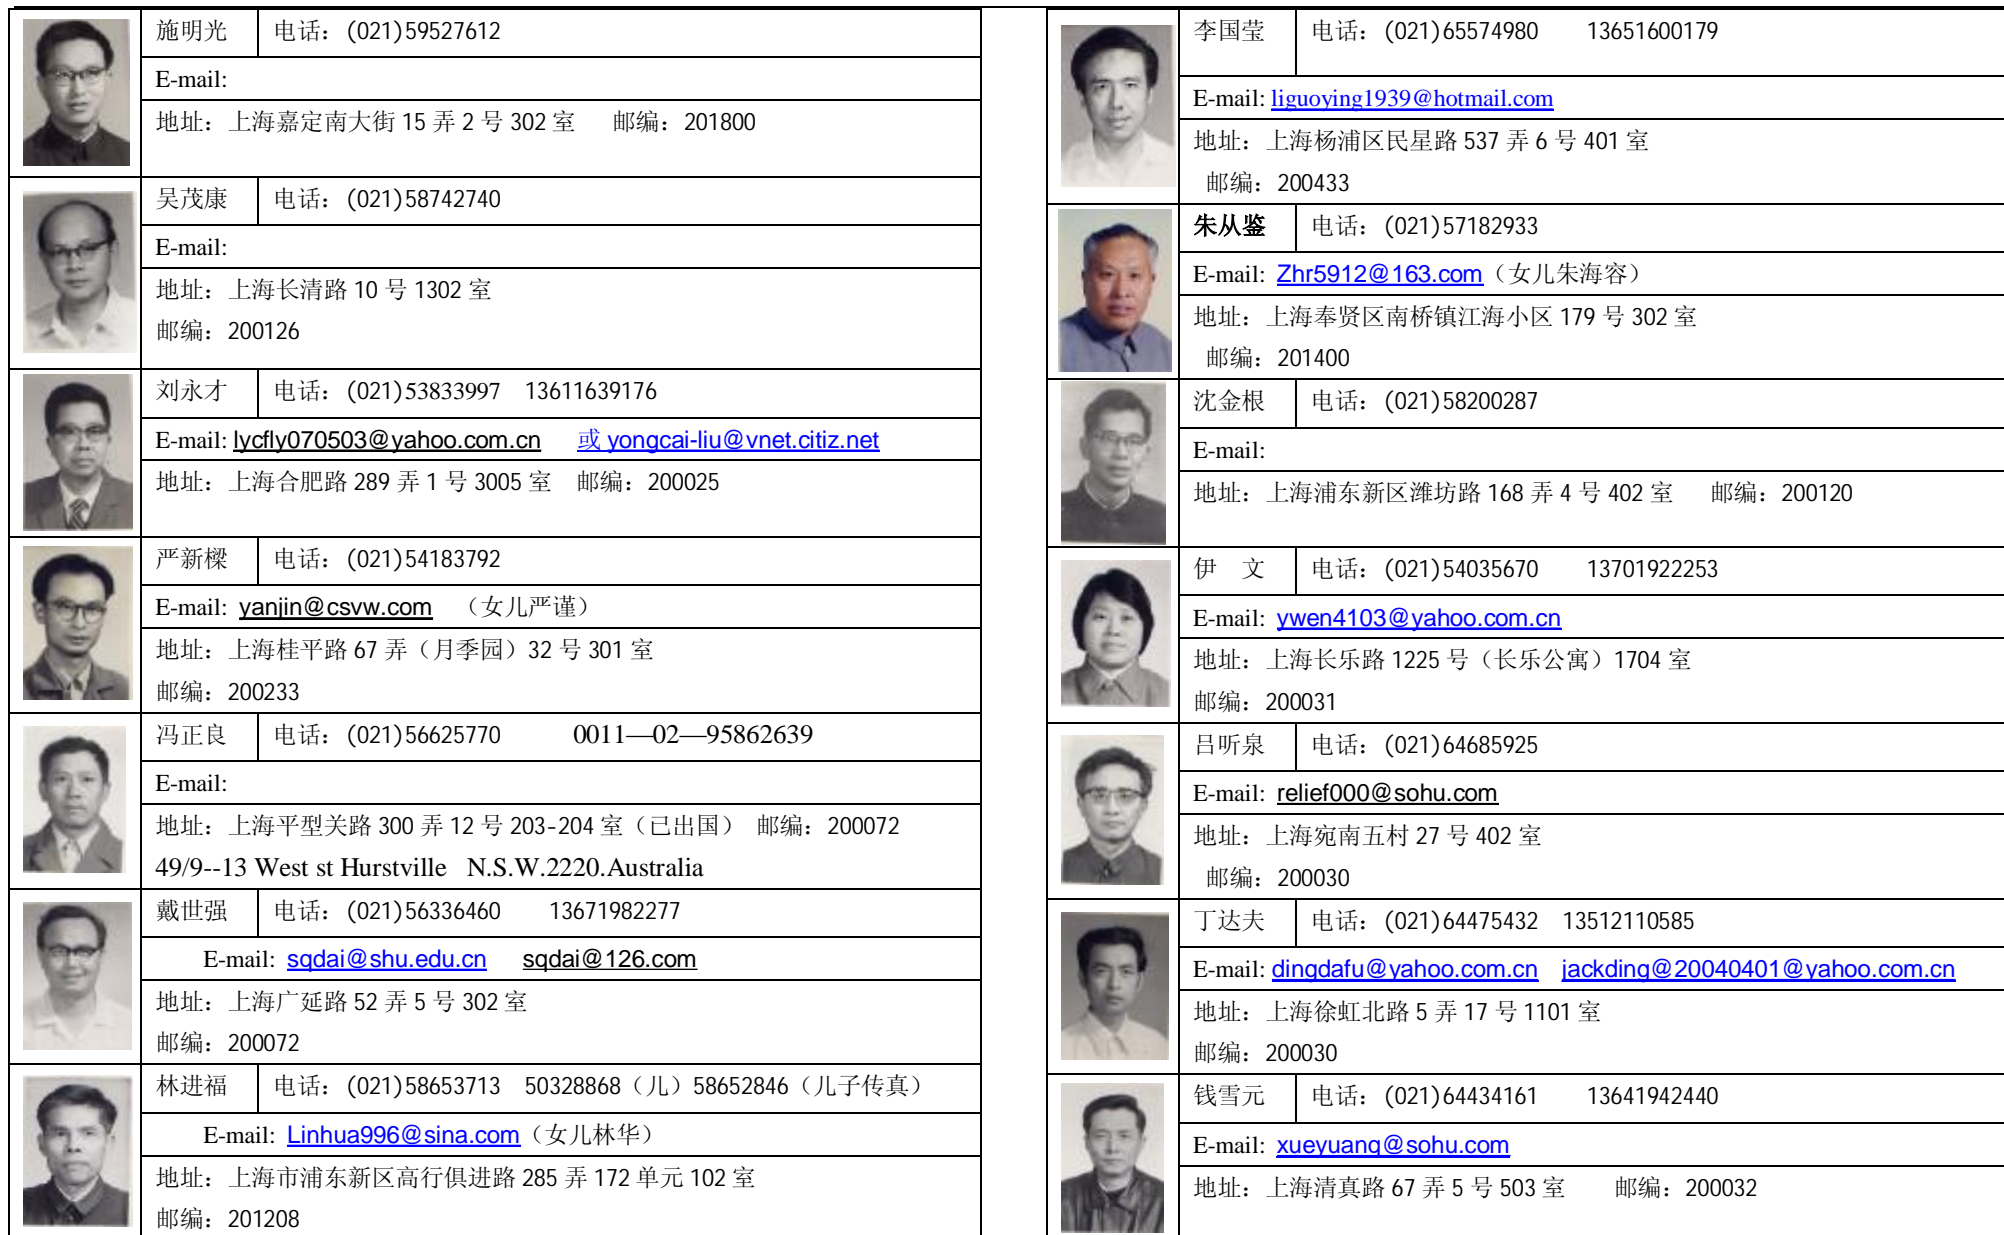 施明光 电话：(021)59527612
E-mail:
地址：上海嘉定南大街 15 弄 2 号 302 室 邮编：201800
吴茂康 电话：(021)58742740
E-mail:
地址：上海长清路 10 号 1302 室
邮编：200126
刘永才 电话：(021)53833997 13611639176
E-mail: lycfly070503@yahoo.com.cn 或 yongcai-liu@vnet.citiz.net
地址：上海合肥路 289 弄 1 号 3005 室 邮编：200025
严新樑 电话：(021)54183792
E-mail: yanjin@csvw.com （女儿严谨）
地址：上海桂平路 67 弄（月季园）32 号 301 室
邮编：200233
冯正良 电话：(021)56625770 0011—02—95862639
E-mail:
地址：上海平型关路 300 弄 12 号 203-204 室（已出国） 邮编：200072
49/9--13 West st Hurstville N.S.W.2220.Australia
戴世强 电话：(021)56336460 13671982277
E-mail: sqdai@shu.edu.cn sqdai@126.com
地址：上海广延路 52 弄 5 号 302 室
邮编：200072
林进福 电话：(021)58653713 50328868（儿）58652846（儿子传真）
E-mail: Linhua996@sina.com（女儿林华）
地址：上海市浦东新区高行俱进路 285 弄 172 单元 102 室
邮编：201208
李国莹 电话：(021)65574980 13651600179
E-mail: liguoying1939@hotmail.com
地址：上海杨浦区民星路 537 弄 6 号 401 室
邮编：200433
朱从鉴 电话：(021)57182933
E-mail: Zhr5912@163.com（女儿朱海容）
地址：上海奉贤区南桥镇江海小区 179 号 302 室
邮编：201400
沈金根 电话：(021)58200287
E-mail:
地址：上海浦东新区潍坊路 168 弄 4 号 402 室 邮编：200120
伊 文 电话：(021)54035670 13701922253
E-mail: ywen4103@yahoo.com.cn
地址：上海长乐路 1225 号（长乐公寓）1704 室
邮编：200031
吕听泉 电话：(021)64685925
E-mail: relief000@sohu.com
地址：上海宛南五村 27 号 402 室
邮编：200030
丁达夫 电话：(021)64475432 13512110585
E-mail: dingdafu@yahoo.com.cn jackding@20040401@yahoo.com.cn
地址：上海徐虹北路 5 弄 17 号 1101 室
邮编：200030
钱雪元 电话：(021)64434161 13641942440
E-mail: xueyuanq@sohu.com
地址：上海清真路 67 弄 5 号 503 室 邮编：200032